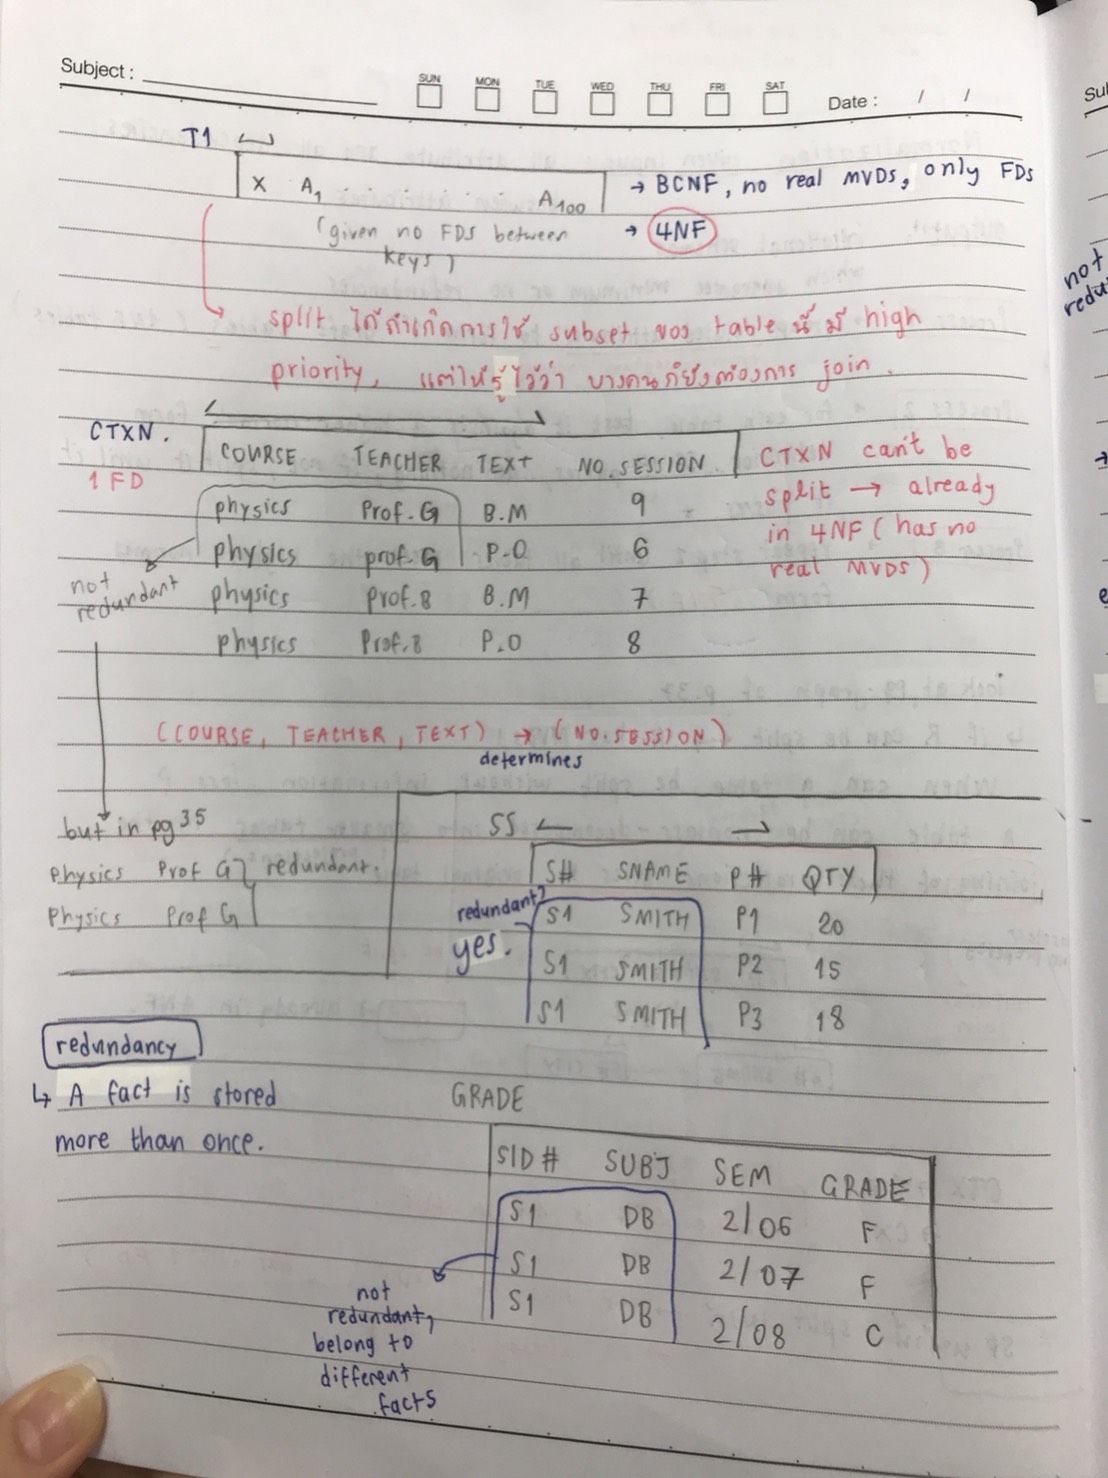 Subject :
SUN MON TUE WED THU FRI SAT
Date : / /
Sub
T1
X A1 . . . . . . . . . A100
→ BCNF, no real MVDs, only FDs
(given no FDs between keys)
→ 4NF
split ได้ถ้าเกิดการใช้ subset ของ table นี้ มี high
priority, แต่ให้รู้ไว้ว่า บางคนก็ยังต้องการ join.
not
CTXN.
1 FD
COURSE TEACHER TEXT NO. SESSION
physics Prof. G B.M 9
physics prof. G P.O 6
physics prof. B B.M 7
physics Prof. B P.O 8
CTXN can't be
split → already
in 4NF (has no
real MVDs)
not
redundant
(COURSE, TEACHER, TEXT) → (NO. SESSION)
determines
but in pg 35
Physics Prof G redundant.
Physics Prof G
SS
S# SNAME P# QTY
S1 SMITH P1 20
S1 SMITH P2 15
S1 SMITH P3 18
redundant?
yes.
redundancy
↳ A fact is stored
more than once.
GRADE
SID# SUBJ SEM GRADE
S1 DB 2/06 F
S1 DB 2/07 F
S1 DB 2/08 C
not
redundant,
belong to
different
facts